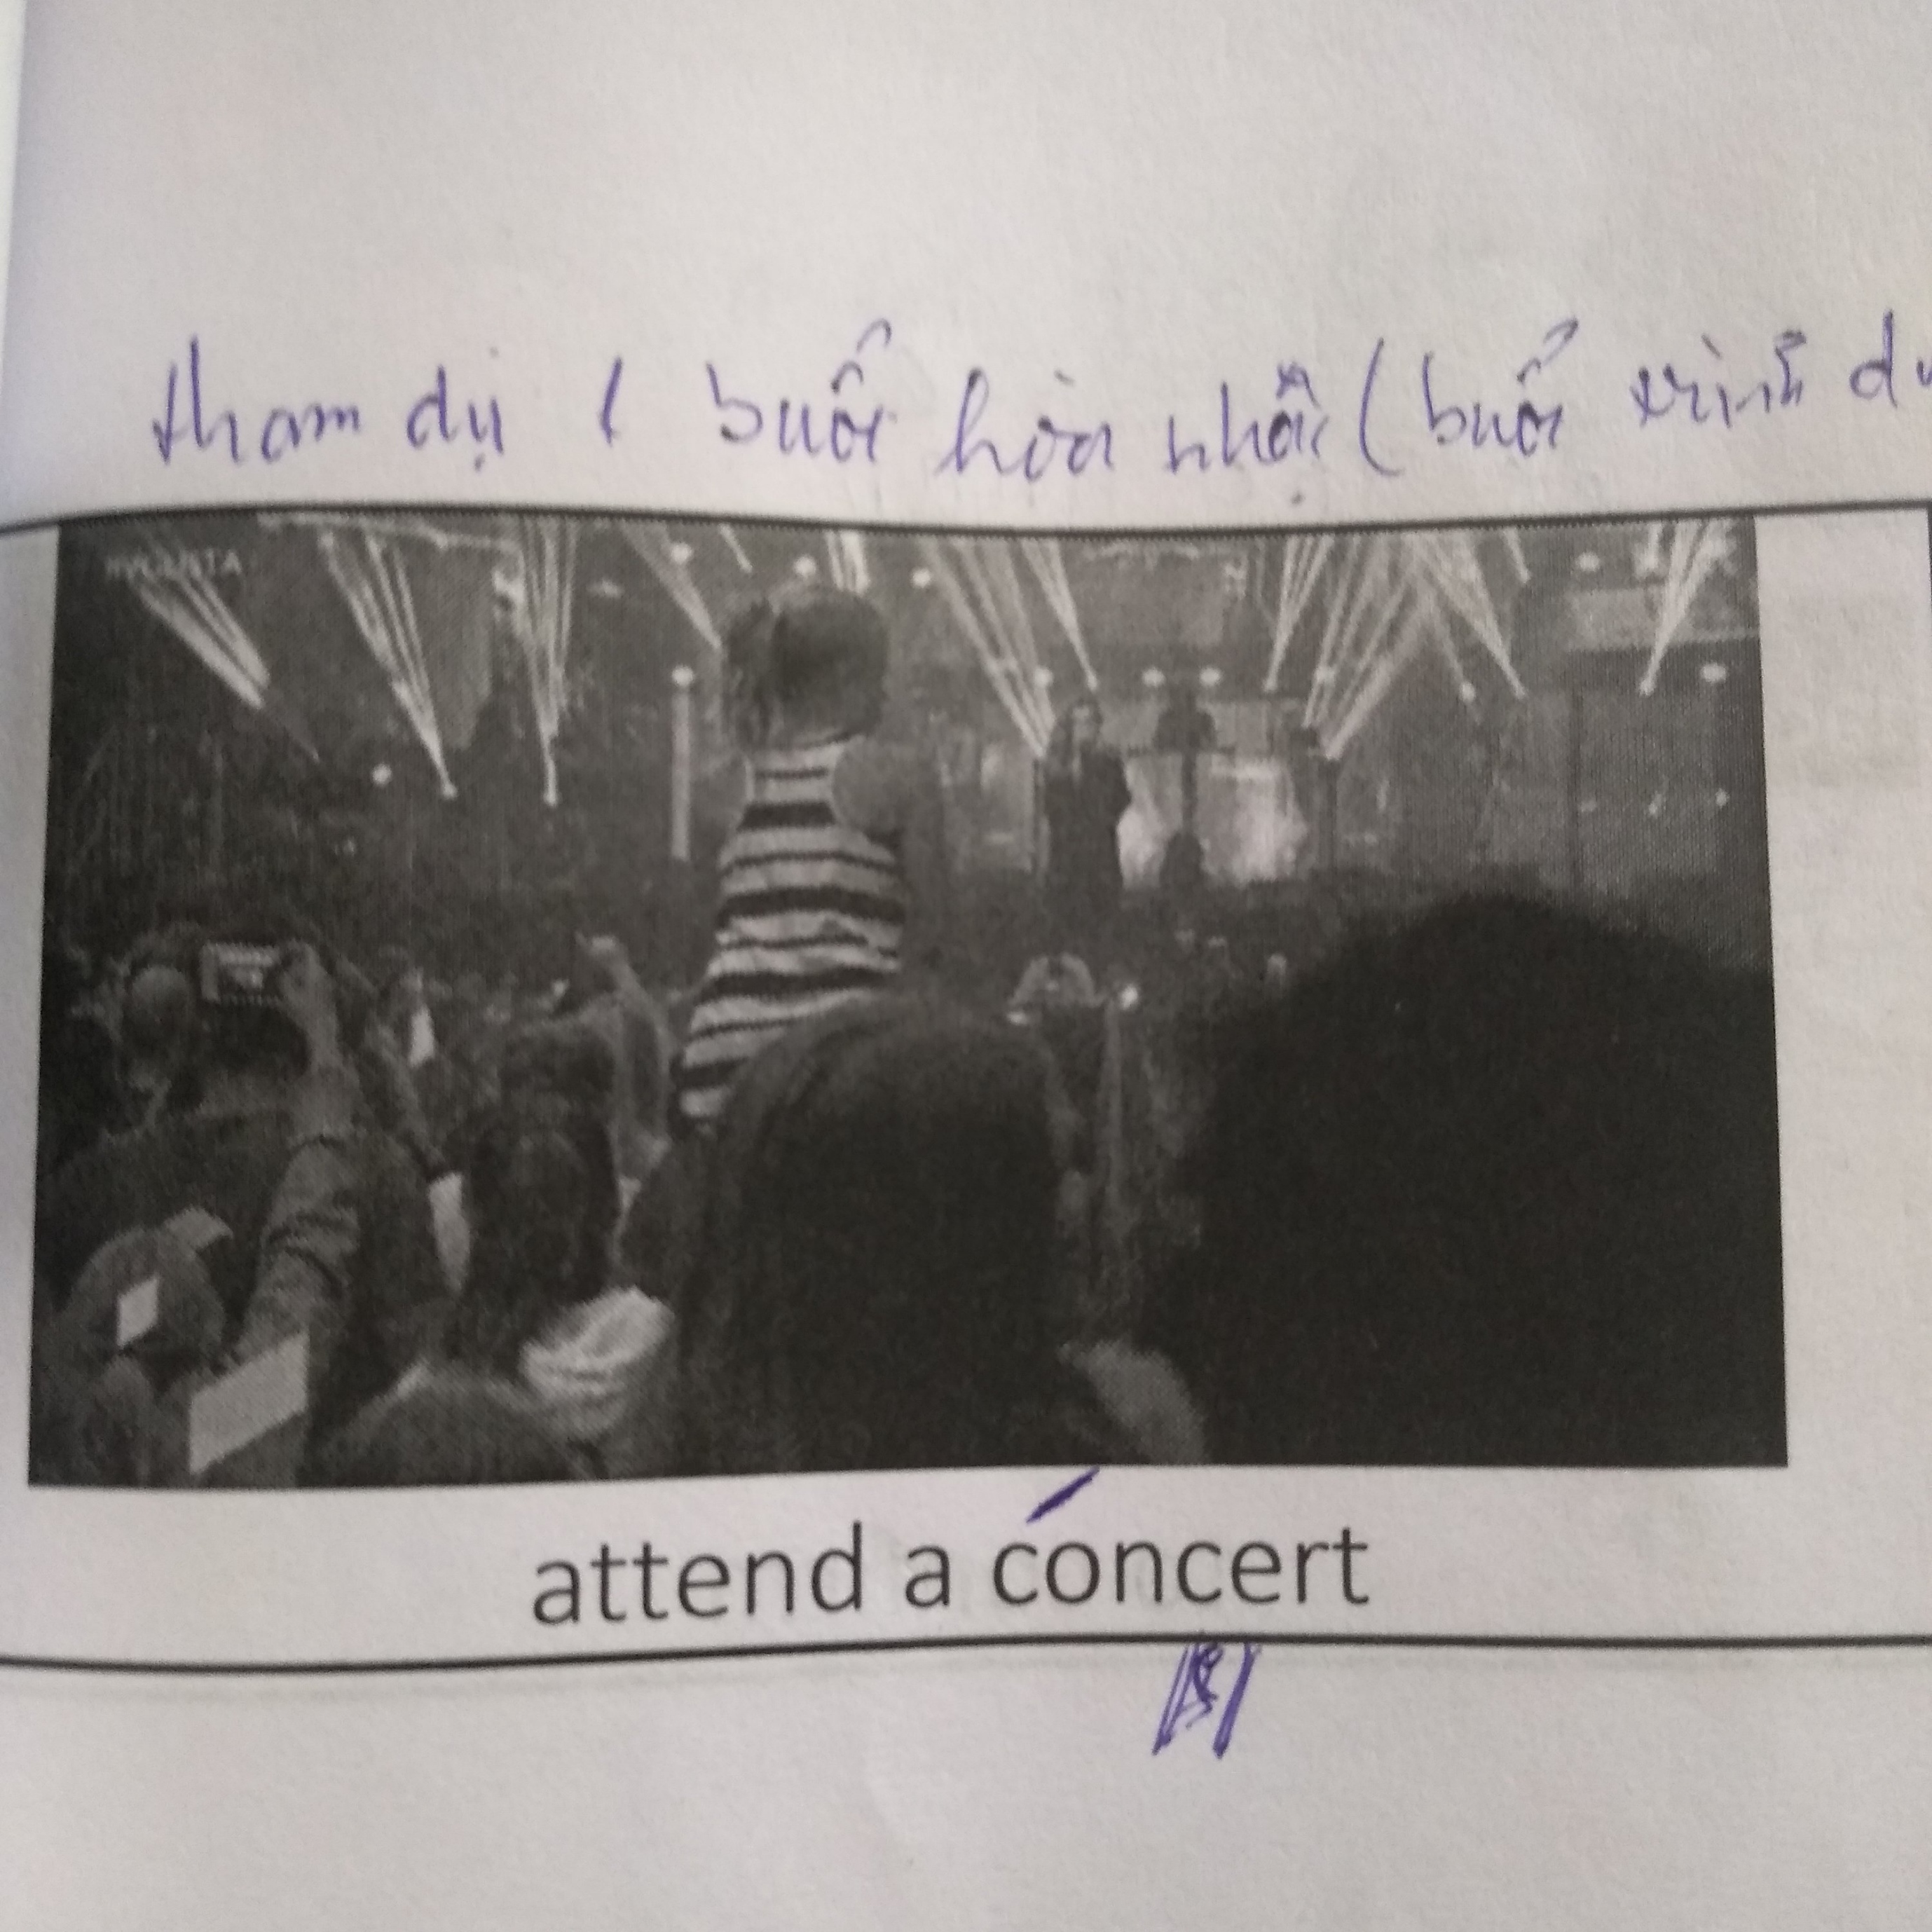 tham dự 1 buổi hòa nhạc (buổi trình
attend a concert